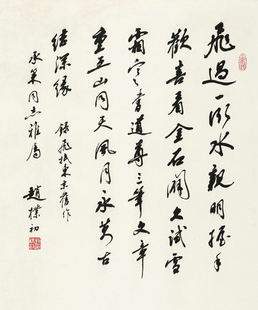 飛過一衣水親朋握手
歡喜看金石久試雪
霜寒書道尊三筆文章
重五山同天風月永萬古
結深緣 錄飛抵東京舊作
承同志雅屬
趙樸初